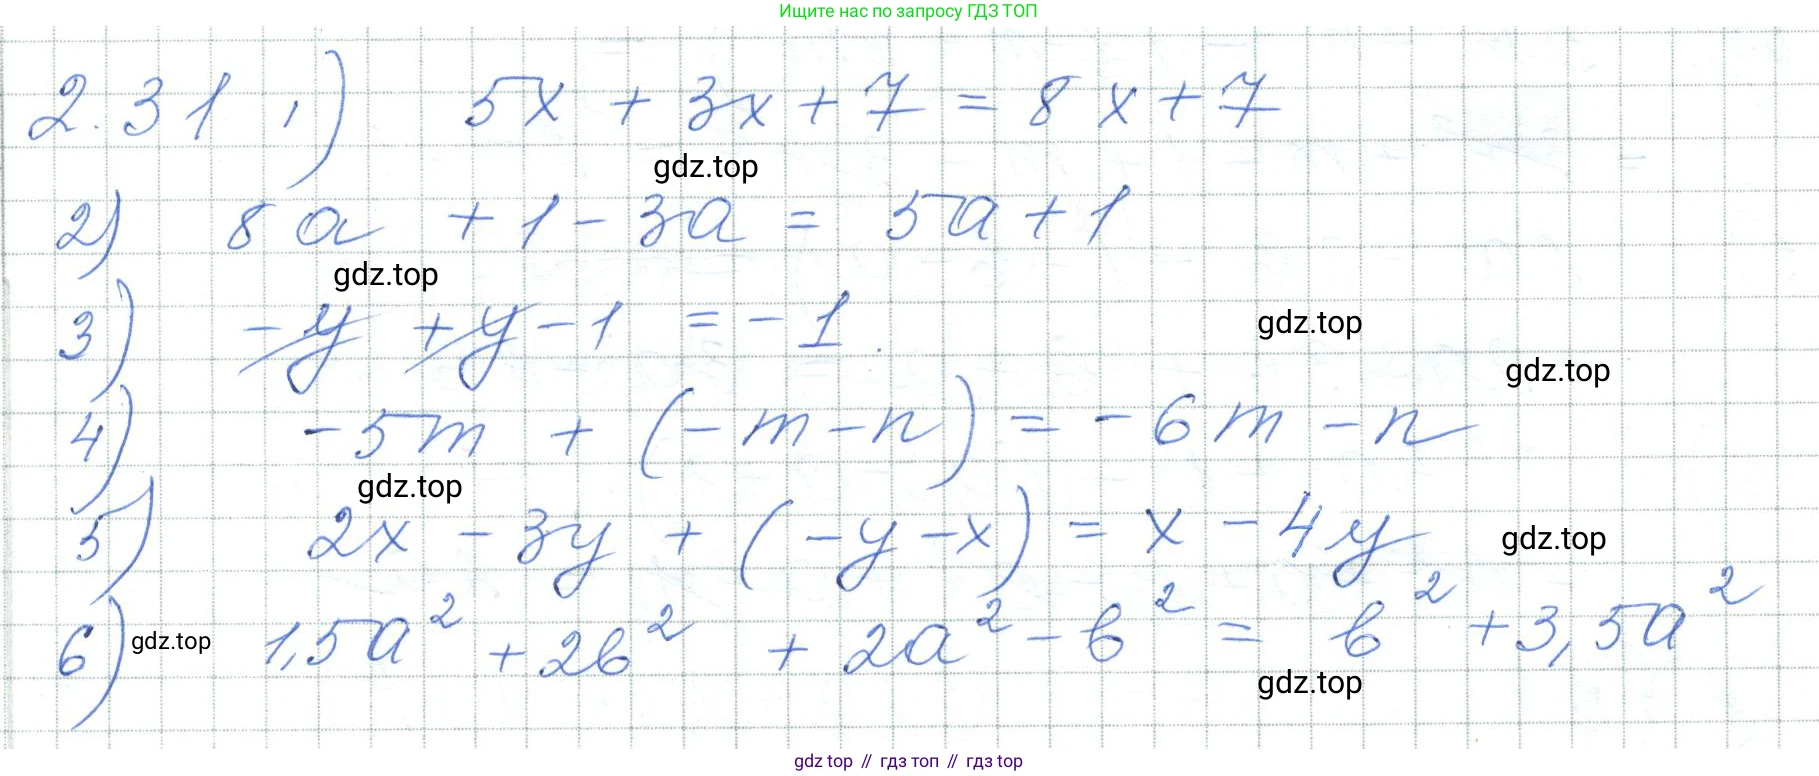 Ищите нас по запросу ГДЗ ТОП
2.31 1) 5x + 3x + 7 = 8x + 7
gdz.top
2) 8a + 1 - 3a = 5a + 1
gdz.top
3) -y + y - 1 = -1.
gdz.top
gdz.top
4) -5m + (-m - n) = -6m - n
gdz.top
5) 2x - 3y + (-y - x) = x - 4y
gdz.top
6) 1,5a² + 2b² + 2a² - b² = b² + 3,5a²
gdz.top
gdz.top
gdz top // гдз топ // гдз top